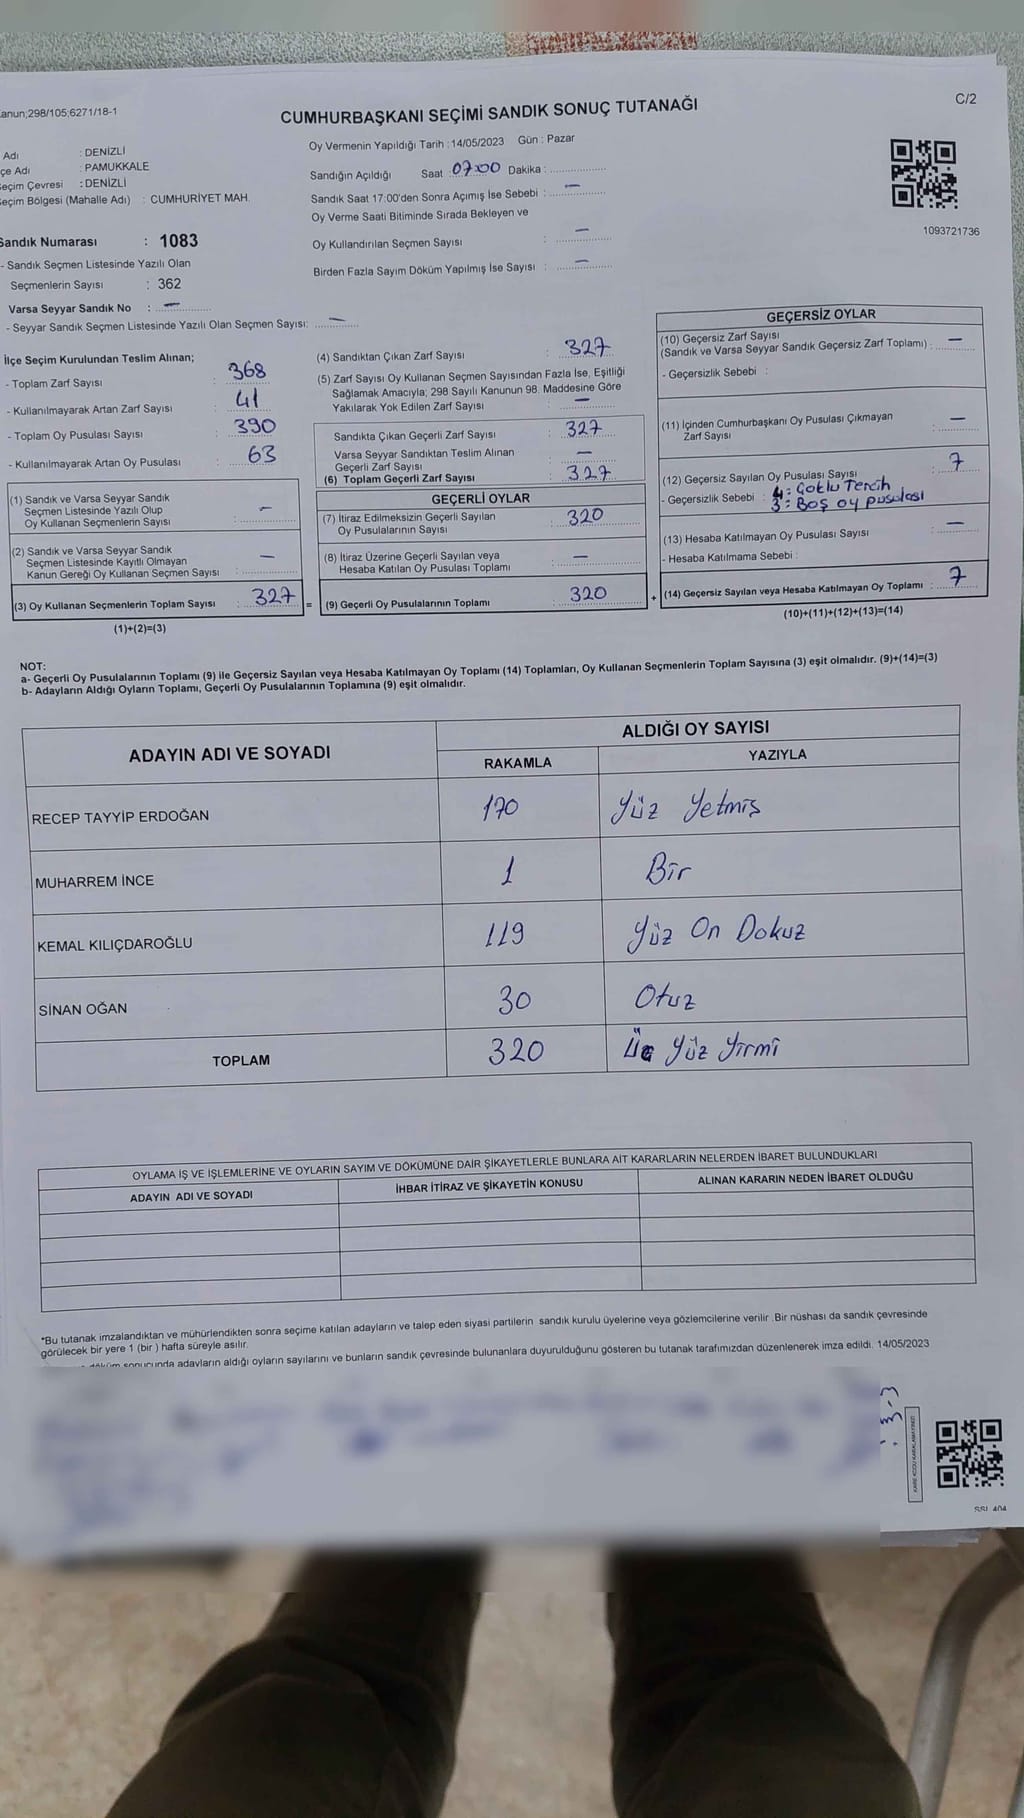 anun;298/105;6271/18-1
CUMHURBAŞKANI SEÇİMİ SANDIK SONUÇ TUTANAĞI
C/2
Adı : DENİZLİ
çe Adı : PAMUKKALE
eçim Çevresi : DENİZLİ
eçim Bölgesi (Mahalle Adı) : CUMHURİYET MAH.
Oy Vermenin Yapıldığı Tarih : 14/05/2023 Gün : Pazar
Sandığın Açıldığı Saat : 07:00 Dakika :
Sandık Saat 17:00'den Sonra Açımış İse Sebebi : —
Oy Verme Saati Bitiminde Sırada Bekleyen ve
Oy Kullandırılan Seçmen Sayısı : —
Birden Fazla Sayım Döküm Yapılmış İse Sayısı : —
1093721736
andık Numarası : 1083
- Sandık Seçmen Listesinde Yazılı Olan
Seçmenlerin Sayısı : 362
Varsa Seyyar Sandık No : —
- Seyyar Sandık Seçmen Listesinde Yazılı Olan Seçmen Sayısı: —
İlçe Seçim Kurulundan Teslim Alınan;
- Toplam Zarf Sayısı : 368
- Kullanılmayarak Artan Zarf Sayısı : 41
- Toplam Oy Pusulası Sayısı : 390
- Kullanılmayarak Artan Oy Pusulası : 63
(1) Sandık ve Varsa Seyyar Sandık
Seçmen Listesinde Yazılı Olup
Oy Kullanan Seçmenlerin Sayısı : —
(2) Sandık ve Varsa Seyyar Sandık
Seçmen Listesinde Kayıtlı Olmayan
Kanun Gereği Oy Kullanan Seçmen Sayısı : —
(3) Oy Kullanan Seçmenlerin Toplam Sayısı : 327
(1)+(2)=(3)
=
(4) Sandıktan Çıkan Zarf Sayısı : 327
(5) Zarf Sayısı Oy Kullanan Seçmen Sayısından Fazla İse, Eşitliği
Sağlamak Amacıyla; 298 Sayılı Kanunun 98. Maddesine Göre
Yakılarak Yok Edilen Zarf Sayısı : —
Sandıkta Çıkan Geçerli Zarf Sayısı : 327
Varsa Seyyar Sandıktan Teslim Alınan
Geçerli Zarf Sayısı : —
(6) Toplam Geçerli Zarf Sayısı : 327
GEÇERLİ OYLAR
(7) İtiraz Edilmeksizin Geçerli Sayılan
Oy Pusulalarının Sayısı : 320
(8) İtiraz Üzerine Geçerli Sayılan veya
Hesaba Katılan Oy Pusulası Toplamı : —
(9) Geçerli Oy Pusulalarının Toplamı : 320
+
GEÇERSİZ OYLAR
(10) Geçersiz Zarf Sayısı
(Sandık ve Varsa Seyyar Sandık Geçersiz Zarf Toplamı) : —
- Geçersizlik Sebebi :
(11) İçinden Cumhurbaşkanı Oy Pusulası Çıkmayan
Zarf Sayısı : —
(12) Geçersiz Sayılan Oy Pusulası Sayısı : 7
- Geçersizlik Sebebi : 4: Çoklu Tercih
3: Boş oy pusulası
(13) Hesaba Katılmayan Oy Pusulası Sayısı : —
- Hesaba Katılmama Sebebi :
(14) Geçersiz Sayılan veya Hesaba Katılmayan Oy Toplamı : 7
(10)+(11)+(12)+(13)=(14)
NOT:
a- Geçerli Oy Pusulalarının Toplamı (9) ile Geçersiz Sayılan veya Hesaba Katılmayan Oy Toplamı (14) Toplamları, Oy Kullanan Seçmenlerin Toplam Sayısına (3) eşit olmalıdır. (9)+(14)=(3)
b- Adayların Aldığı Oyların Toplamı, Geçerli Oy Pusulalarının Toplamına (9) eşit olmalıdır.
ADAYIN ADI VE SOYADI
ALDIĞI OY SAYISI
RAKAMLA YAZIYLA
RECEP TAYYİP ERDOĞAN 170 Yüz Yetmiş
MUHARREM İNCE 1 Bir
KEMAL KILIÇDAROĞLU 119 Yüz On Dokuz
SİNAN OĞAN 30 Otuz
TOPLAM 320 Üç Yüz Yirmi
OYLAMA İŞ VE İŞLEMLERİNE VE OYLARIN SAYIM VE DÖKÜMÜNE DAİR ŞİKAYETLERLE BUNLARA AİT KARARLARIN NELERDEN İBARET BULUNDUKLARI
ADAYIN ADI VE SOYADI İHBAR İTİRAZ VE ŞİKAYETİN KONUSU ALINAN KARARIN NEDEN İBARET OLDUĞU
*Bu tutanak imzalandıktan ve mühürlendikten sonra seçime katılan adayların ve talep eden siyasi partilerin sandık kurulu üyelerine veya gözlemcilerine verilir .Bir nüshası da sandık çevresinde
görülecek bir yere 1 (bir ) hafta süreyle asılır.
döküm sonucunda adayların aldığı oyların sayılarını ve bunların sandık çevresinde bulunanlara duyurulduğunu gösteren bu tutanak tarafımızdan düzenlenerek imza edildi. 14/05/2023